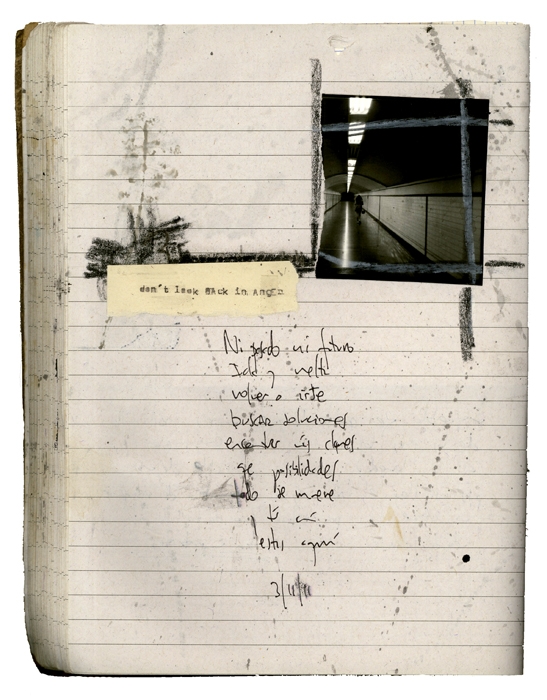 don't look BAck in AnGEr
Ni pasado ni futuro
Ida y vuelta
volver o irte
buscar soluciones
encontrar claves
que posibilidades
todo se mueve
tú
estás aquí
3/11/11